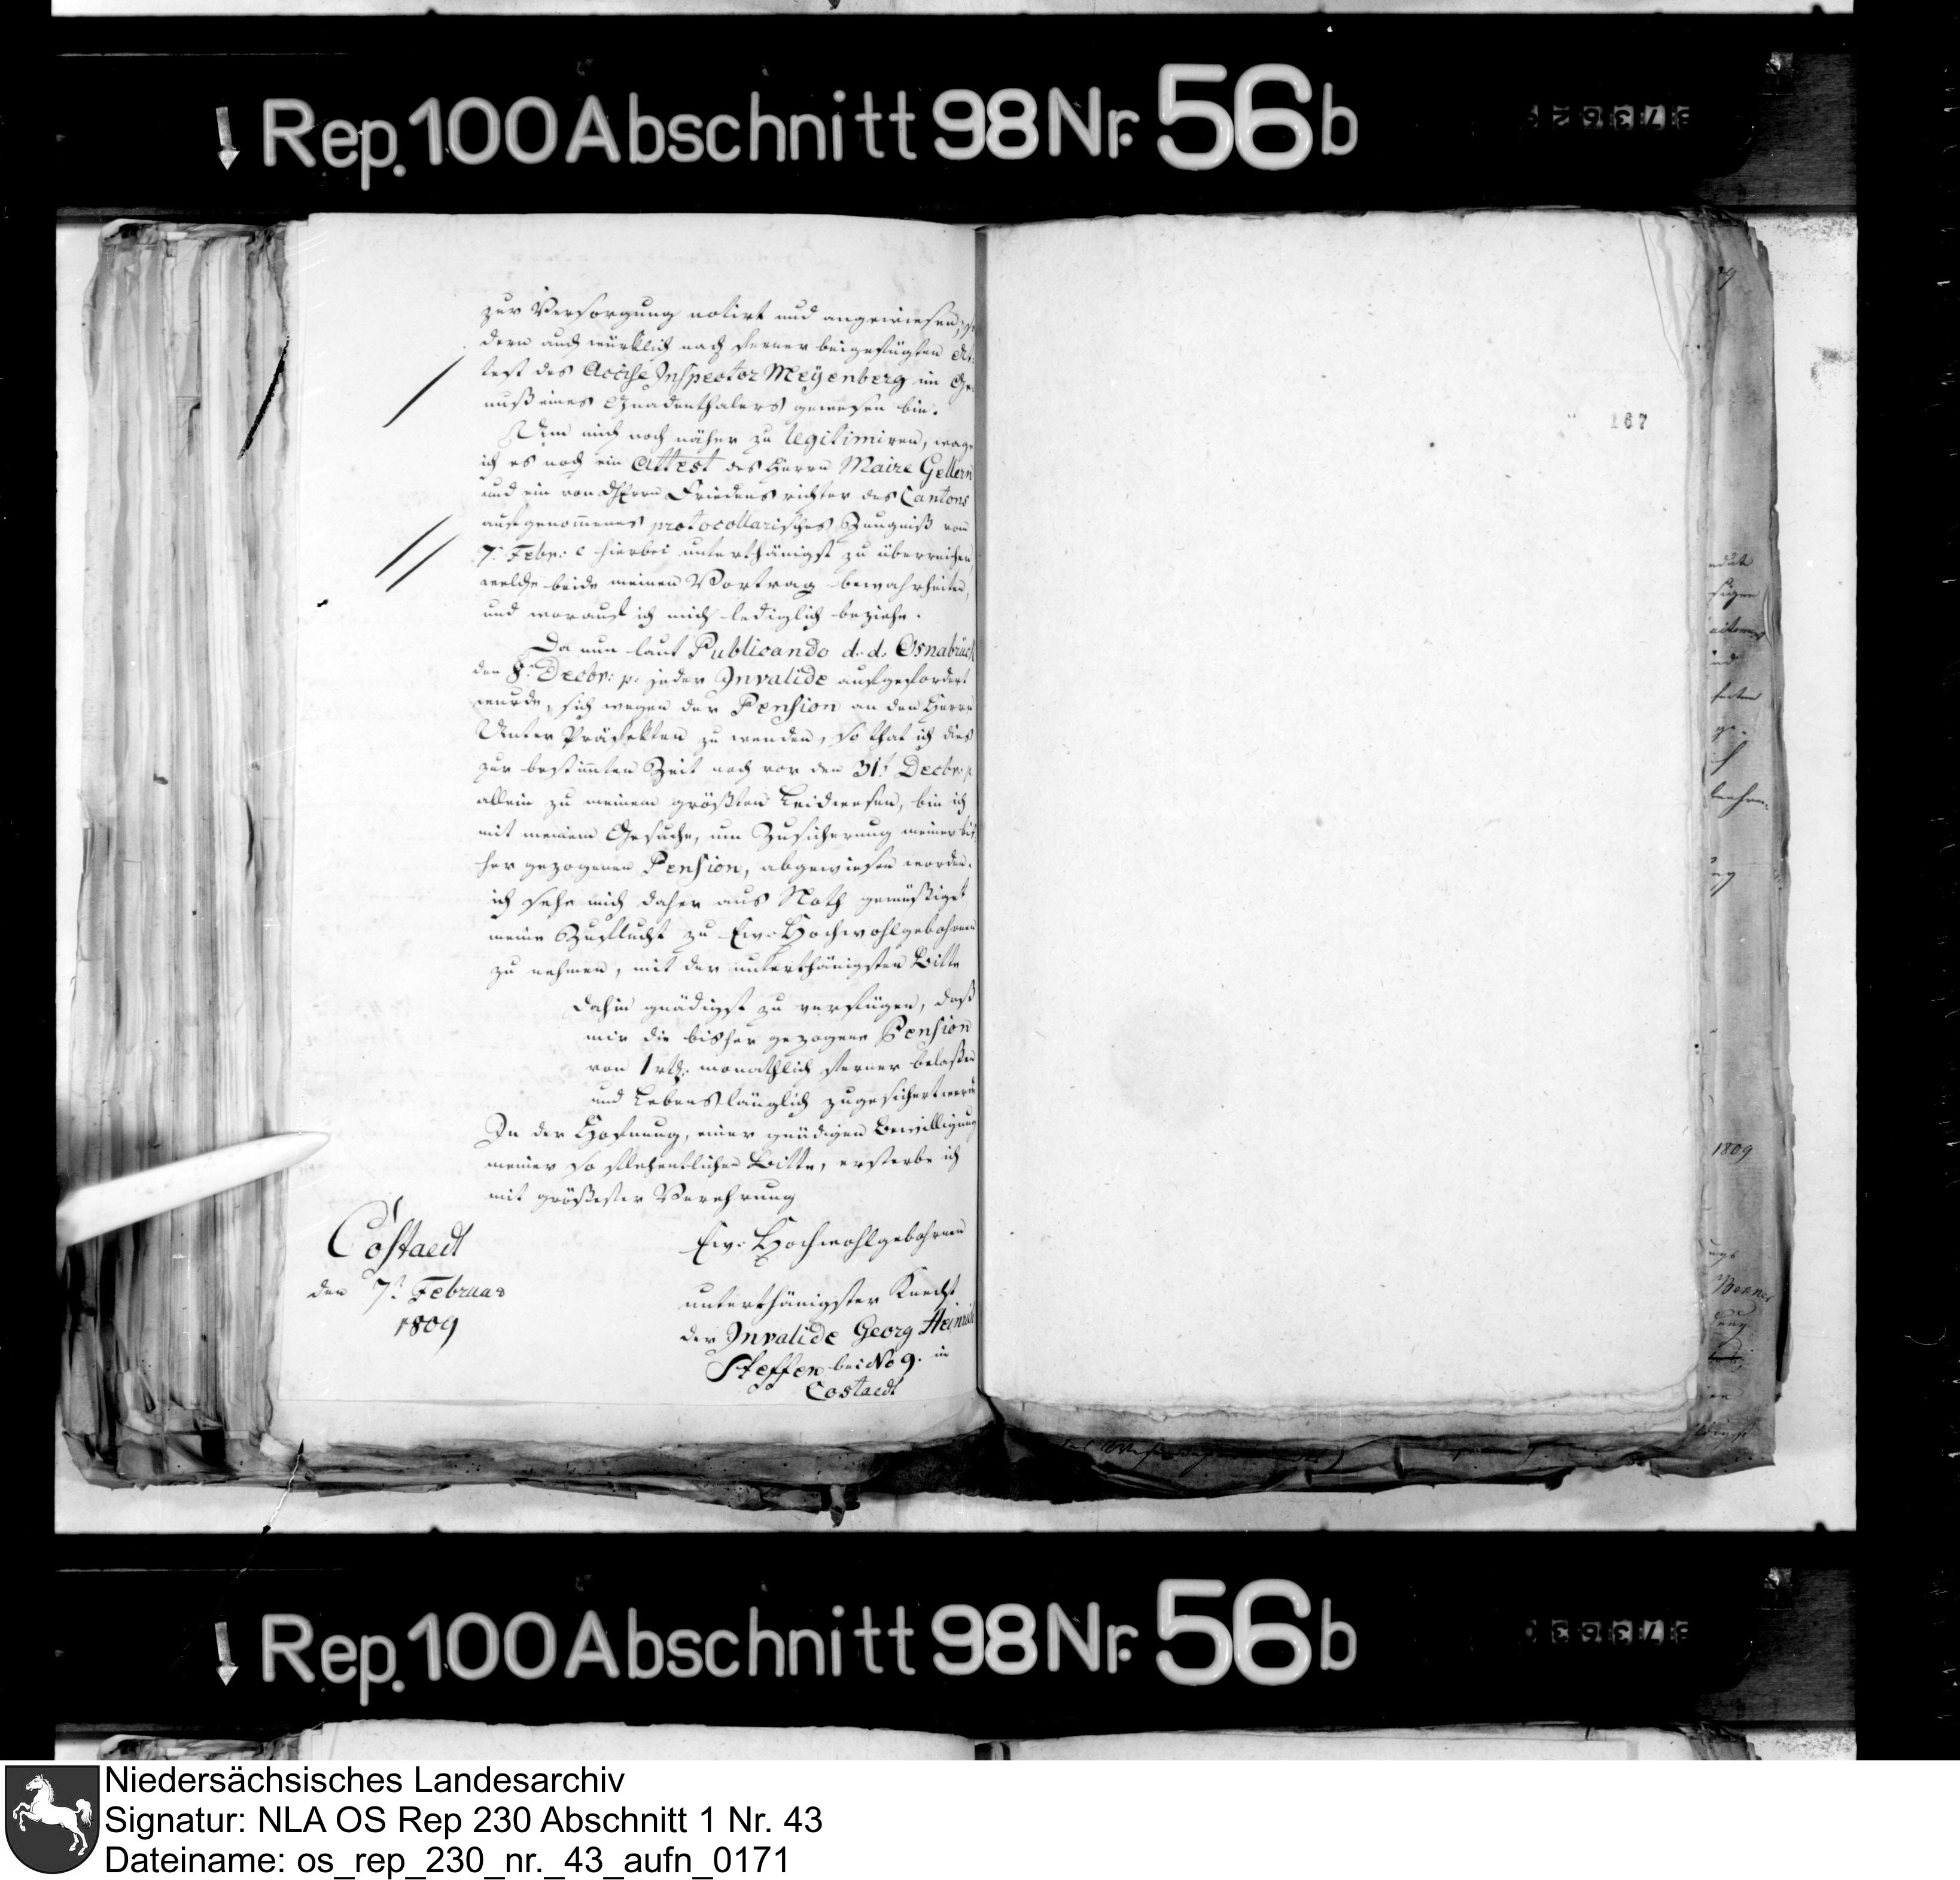 Rep. 100 Abschnitt 98 Nr. 56b
zur Versorgung notirt und angewiesen, son
dern auch würklich nach ferner beigefügten At
test des Accise Inspector Meÿenberg im Ge
nuß eines Gnadenthalers gewesen bin.
Um mich noch näher zu legitimiren, wage
ich es noch ein Attest des Herrn Maire Gellern
und ein von Herrn Friedens richter des Cantons
aufgenommenes protocollarisches Zeugniß vom
7. Febr: c hierbei unterthänigst zu überreichen,
welche beide meinen Vortrag bewahrheiten,
und worauf ich mich lediglich beziehe.
Da nun laut Publicando d. d. Osnabrück
den 8. Decbr: p. jeder Invalide aufgefordert
wurde, sich wegen der Pension an den Herrn
Unter Präfekten zu wenden, so that ich dies
zur bestimten Zeit noch vor den 31t Decbr: p.
allein zu meinem größten Leidwesen, bin ich
mit meinem Gesuche, um Zusicherung meiner bis
her gezogenen Pension, abgewiesen worden.
ich sehe mich daher aus Noth gemüßiget
meine Zuflucht zu Ew: Hochwohlgebohrnen
zu nehmen, mit der unterthänigsten Bitte
dahin gnädigst zu verfügen, daß
mir die bisher gezogene Pension
von 1 rth. monathlich ferner belaßen
und Lebenslänglich zugesichert werde
In der Hofnung, einer gnädigen Bewilligung
meiner so flehentlichen Bitte, ersterbe ich
mit größester Verehrung
Costaedt
den 7t Februar
1809
Ew: Hochwohlgebohrnen
unterthänigster Knecht
der Invalide Georg Heinrich
Steffen bei No 9. in
Costaedt
167
1809
Rep. 100 Abschnitt 98 Nr. 56b
Niedersächsisches Landesarchiv
Signatur: NLA OS Rep 230 Abschnitt 1 Nr. 43
Dateiname: os_rep_230_nr._43_aufn_0171